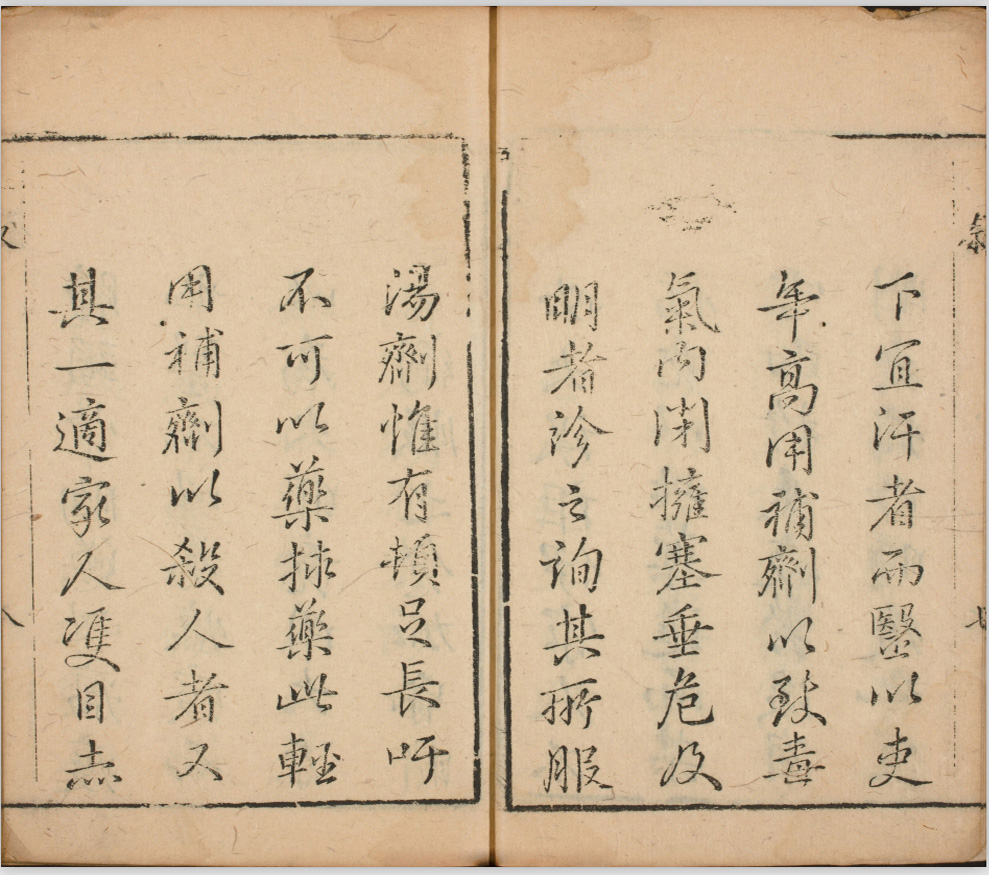 下宜汗者而醫以吏
年高用補劑以致毒
氣內閉擁塞垂危及
明者診之詢其所服
湯劑惟有頓足長吁
不可以藥捄藥此輕
用補劑以殺人者又
其一適家人雙目赤